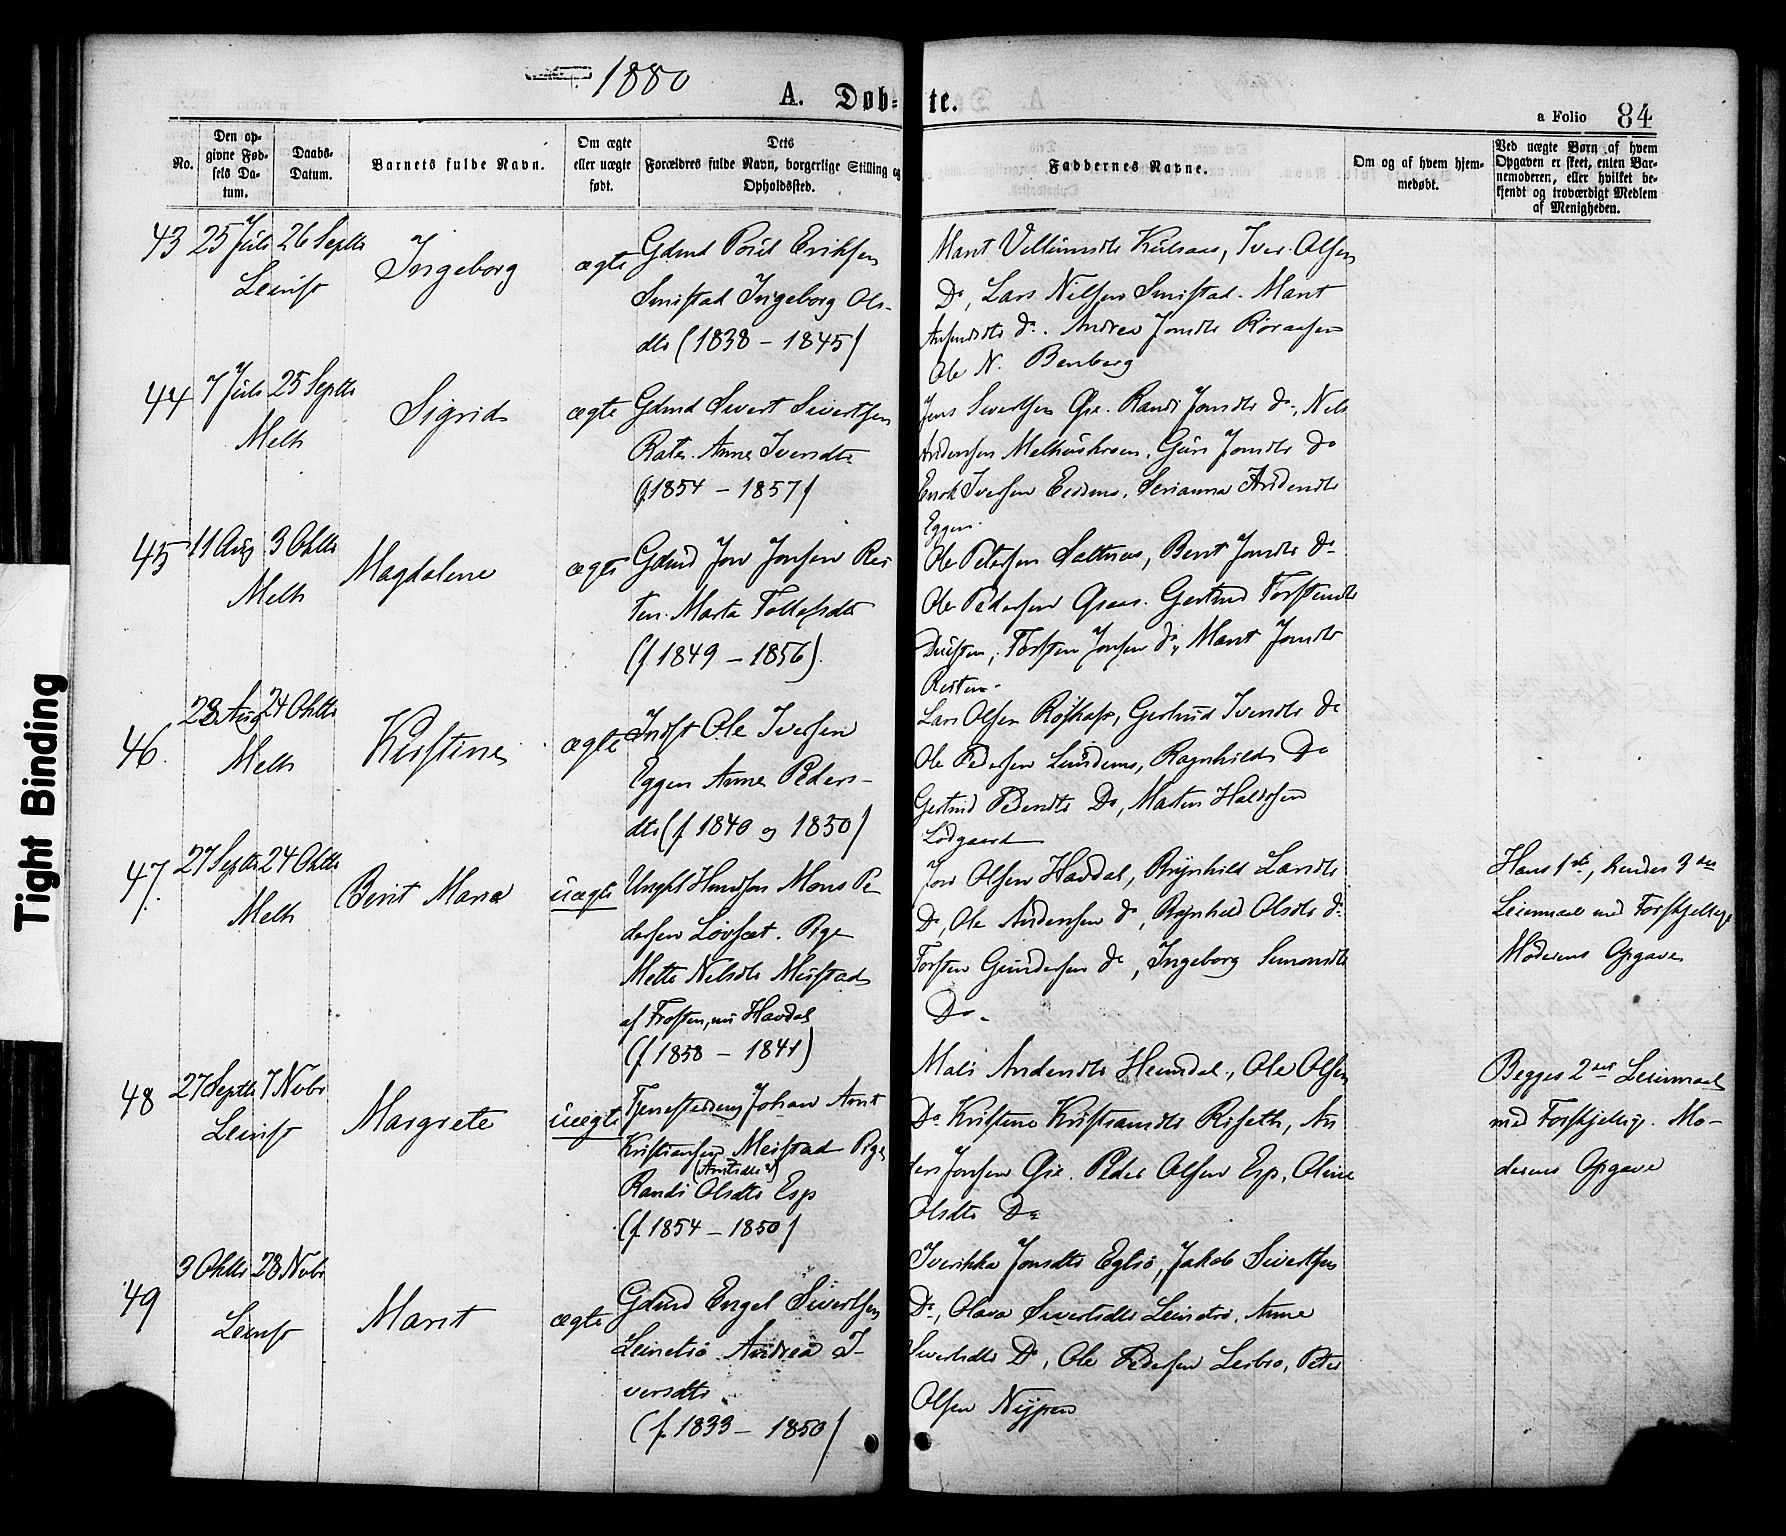 1880
A. Døb=te.
a Folio 84
No.
Den op-
givne Fød-
sels Da-
tum.
Daabs-
Datum.
Barnets fulde Navn.
Om ægte
eller uægte
født.
Dets
Forældres fulde Navn, borgerlige Stilling og
Opholdssted.
Faddernes Navne.
Om og af hvem hjem-
medøbt.
Ved uægte Børn af hvem
Opgaven er skeet, enten Bar-
nemoderen, eller hvilket be-
kjendt og troværdigt Medlem
af Menigheden.
43 25 Juli 26 Septbr
Leinst
Ingeborg
ægte
Gdmd Poul Eriksen
Smistad Ingeborg Ols-
dtr (1838 – 1845)
Iver Olsen
Do, Lars Nilsen Smistad. Marit
do. Andrea Jonsdtr
Ole N. Benberg
44 7 Juli 25 Septbr
Melh
Sigrid
ægte
Gdmd Sivert Sivertsen
Anne Iversdtr
(f. 1854 – 1857)
Jens Sivertsen Øie. Randi Jonsdtr do, Nils
Andersen Guri Jonsdtr Do
Iversen
Eggen.
45 11 Aug 3 Oktbr
Melh
Magdalene
ægte
Gdmd Jon Jonsen Rei
ten. Marta Tollefsdtr
(f 1849 – 1856).
Ole Petersen Saltnes, Berit Jonsdtr do
Ole Pedersen Gertrud Torstensdtr
Torsten Jonsen do, Marit Jonsdtr
46. 23 Aug 24 Oktbr
Melh
Kirstine
ægte
Indst Ole Iversen
Eggen Anne Peders-
dtr (f 1840 og 1830)
Lars Olsen Røskaft, Gertrud Iversdtr do
Ole Pedersen Ragnhild Do
Gertrud Pedersdtr Do, Marten
Lodgaard
47. 27 Septbr 24 Oktbr
Melh
Berit Maria
uægte
Ungkl Mons Pe
dersen Løvset. Pige
Mette Nilsdtr Meistad
af Frosten, nu Havdal
(f 1858 – 1841)
Jon Olsen Havdal, Brynhild Larsdtr
Do, Ole Andersen do, Brynhild Olsdtr do
Torsten Gundersen do, Ingeborg Simonsdtr
Do.
Hans 1ste, hendes 3die
Leiermaal med Forskjellige
Moderens Opgave
48 27 Septbr 7 Novbr
Leinst
Margrete
uægte
Tjenestedreng Johan Arnt
Kristiansen Meistad Pige
(Arntsdtr?)
Randi Olsdtr Esp
(f. 1854 – 1850)
Mali Andersdtr Heimdal, Ole Olsen
Do Kristine Kristiansdtr Riseth, An
ders Jonsen Øie. Peder Olsen Esp, Oline
Olsdtr Do
Begges 2det Leiermaal
med Forskjellige. Mo-
derens Opgave
49 3 Oktbr 28 Novbr
Leinst
Marit
ægte
Gdmd Engel Sivertsen
Leinstrø Andrea I-
versdtr
(f. 1833 – 1850)
Iverikka Jonsdtr Eglsø, Jakob Sivertsen
Do, Olava Sivertsdtr Leinstrø, Anne
Sivertsdtr Do, Ole Pedersen Lerbro, Peter
Olsen Nypan
Tight Binding